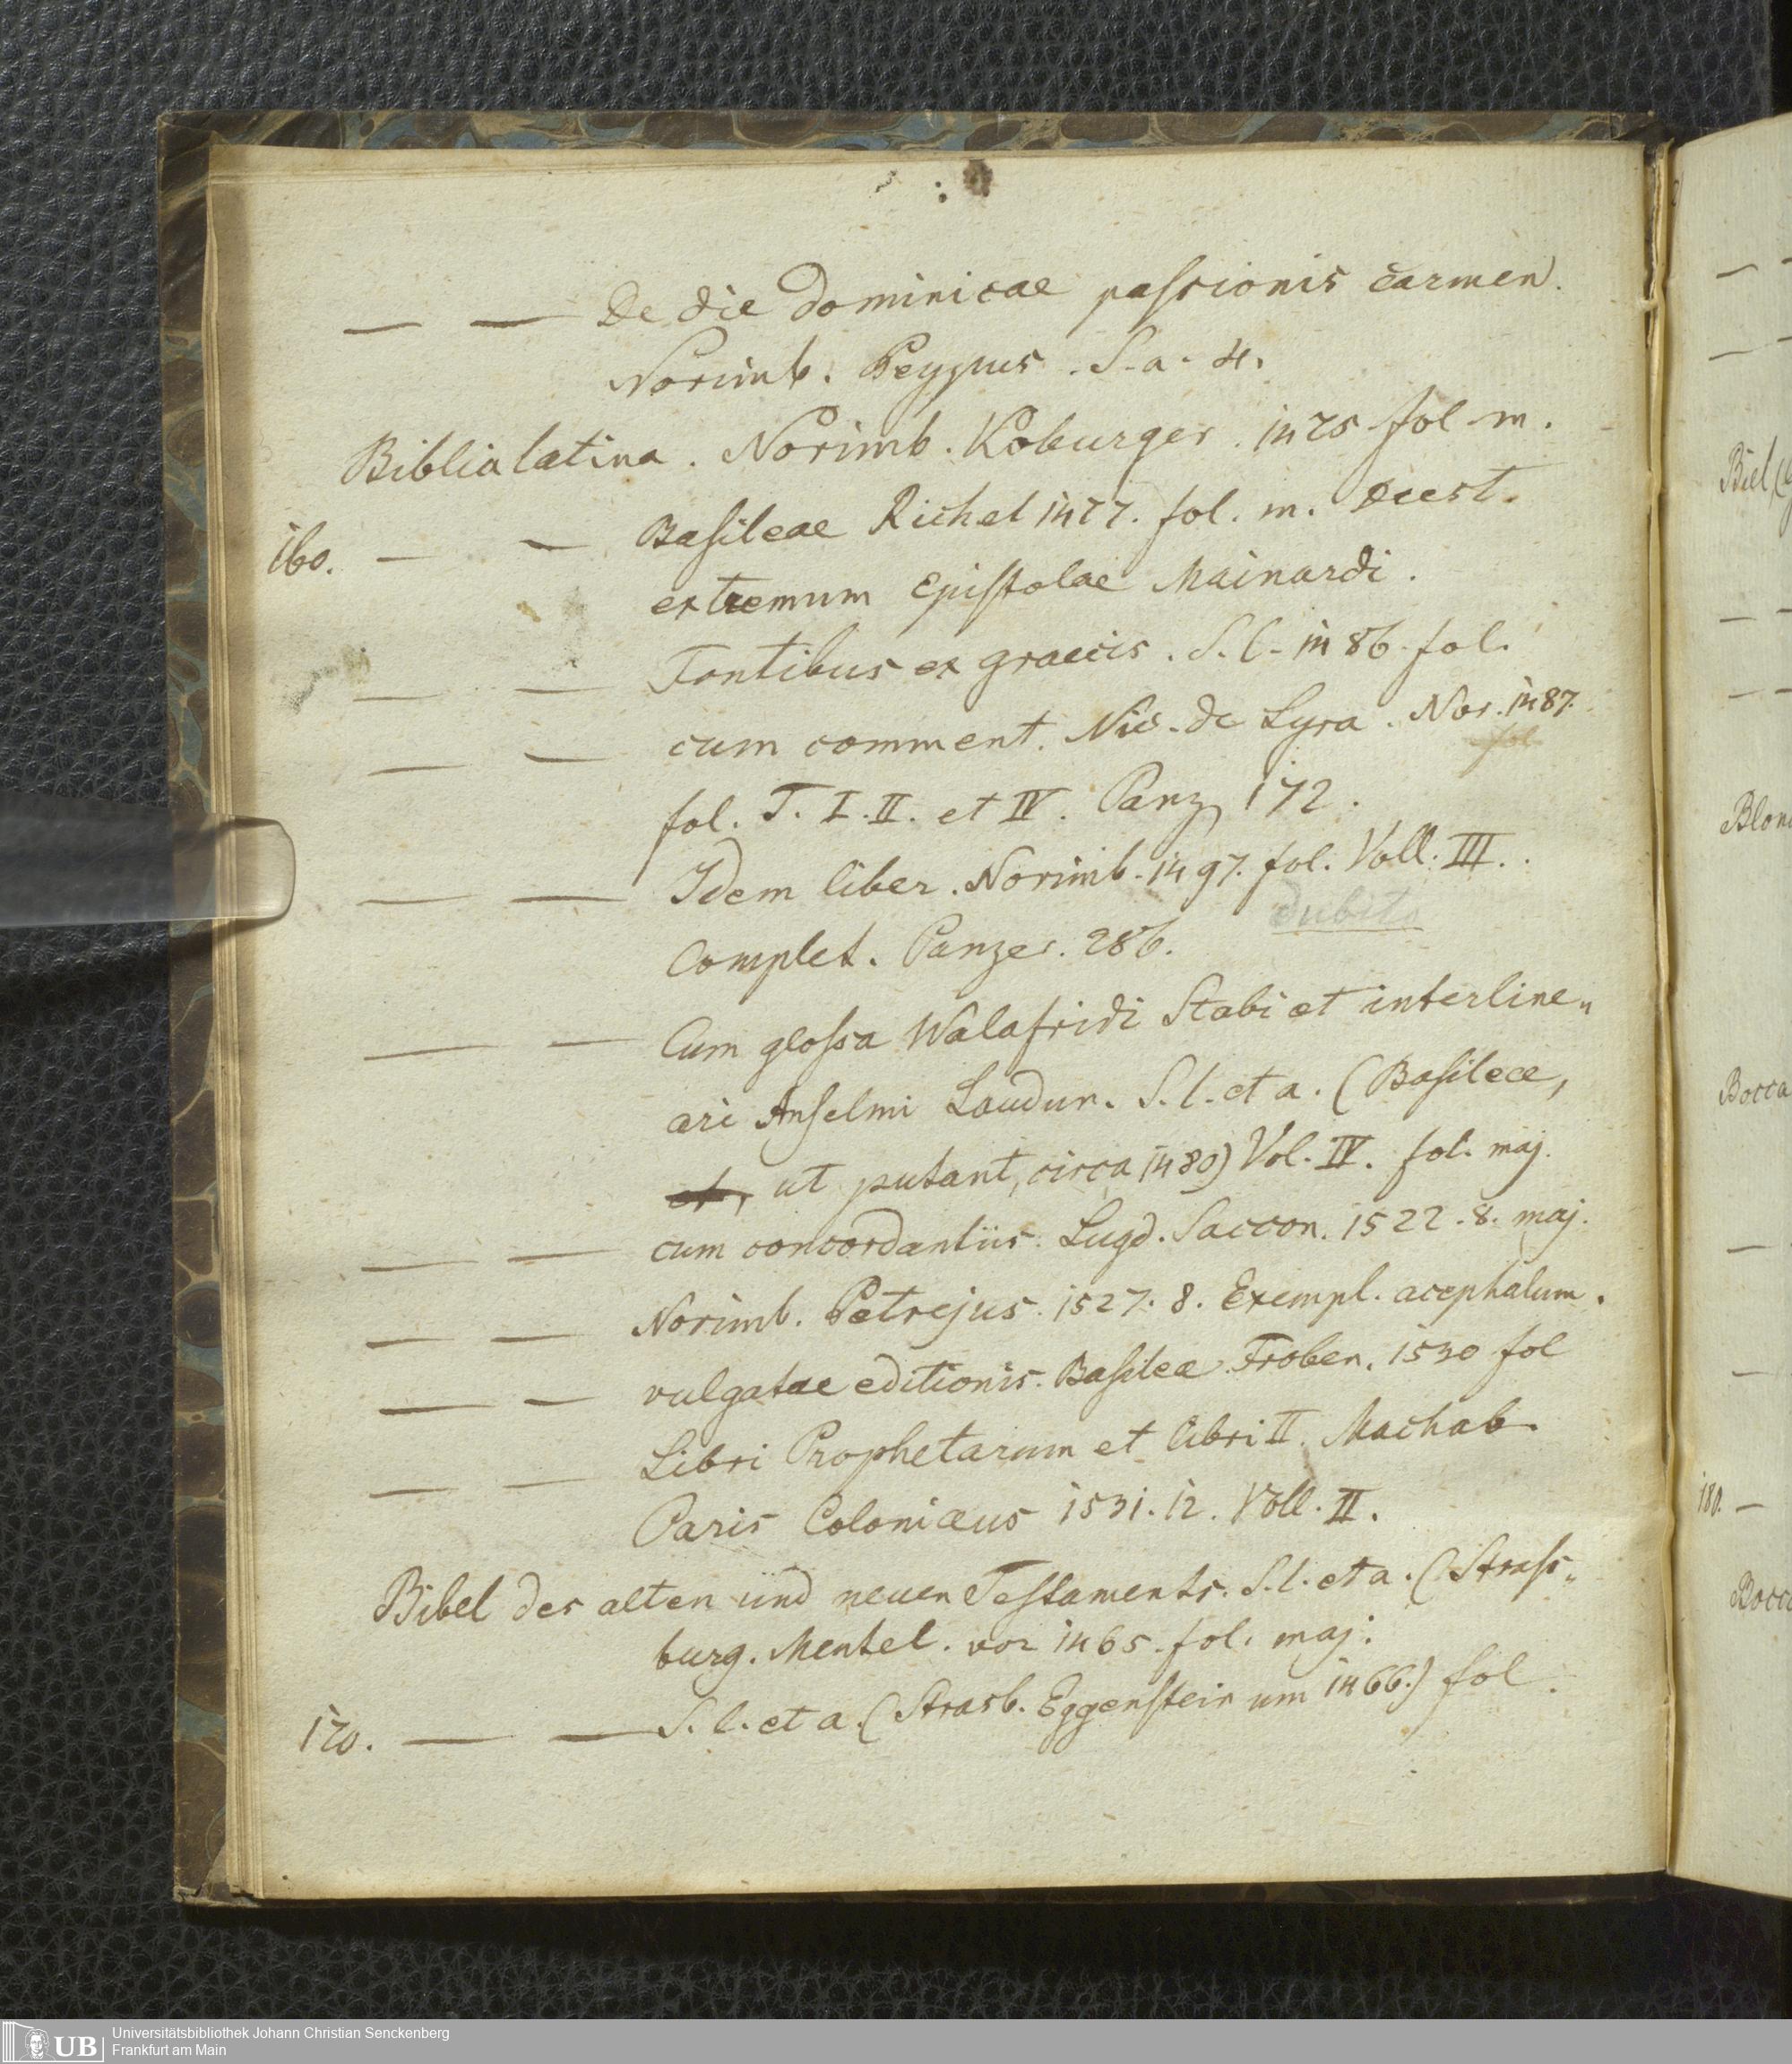 — — De die dominicae passionis carmen.
Norimb. Peypus. S. a. 4.
Biblia latina. Norimb. Koburger. 1475 fol m.
160. — — Basileae Richel 1477. fol. m. Deest
extremum Epistolae Mainardi.
— — Fontibus ex graecis. S. l. 1486. fol.
— — cum comment. Nic. de Lyra. Nor. 1487.
fol
fol. T. I. II. et IV. Panz. 172.
— — Idem liber. Norimb. 1497. fol. Voll. III.
dubito
Complet. Panzer. 286.
— — Cum glossa Walafridi Stabi et interline„
ari Anselmi Laudun. S. l. et a. (Basileae,
et, ut putant, circa 1480) Vol. IV. fol. maj.
— — cum concordantiis. Lugd. Saccon. 1522. 8. maj.
— — Norimb. Petrejus. 1527. 8. Exempl. acephalum.
— — vulgatae editionis. Basileae. Froben. 1530 fol
— — Libri Prophetarum et libri II. Machab.
Paris Coloniaeus 1531. 12. Voll. II.
Bibel des alten und neuen Testaments. S. l. et a. (Strass„
burg. Mentel. vor 1465. fol. maj.
170. — — S. l. et a. (Strasb. Eggenstein um 1466.) fol.
Biel, (
Blon
Bocca
180. —
Bocc
UB
Universitätsbibliothek Johann Christian Senckenberg
Frankfurt am Main